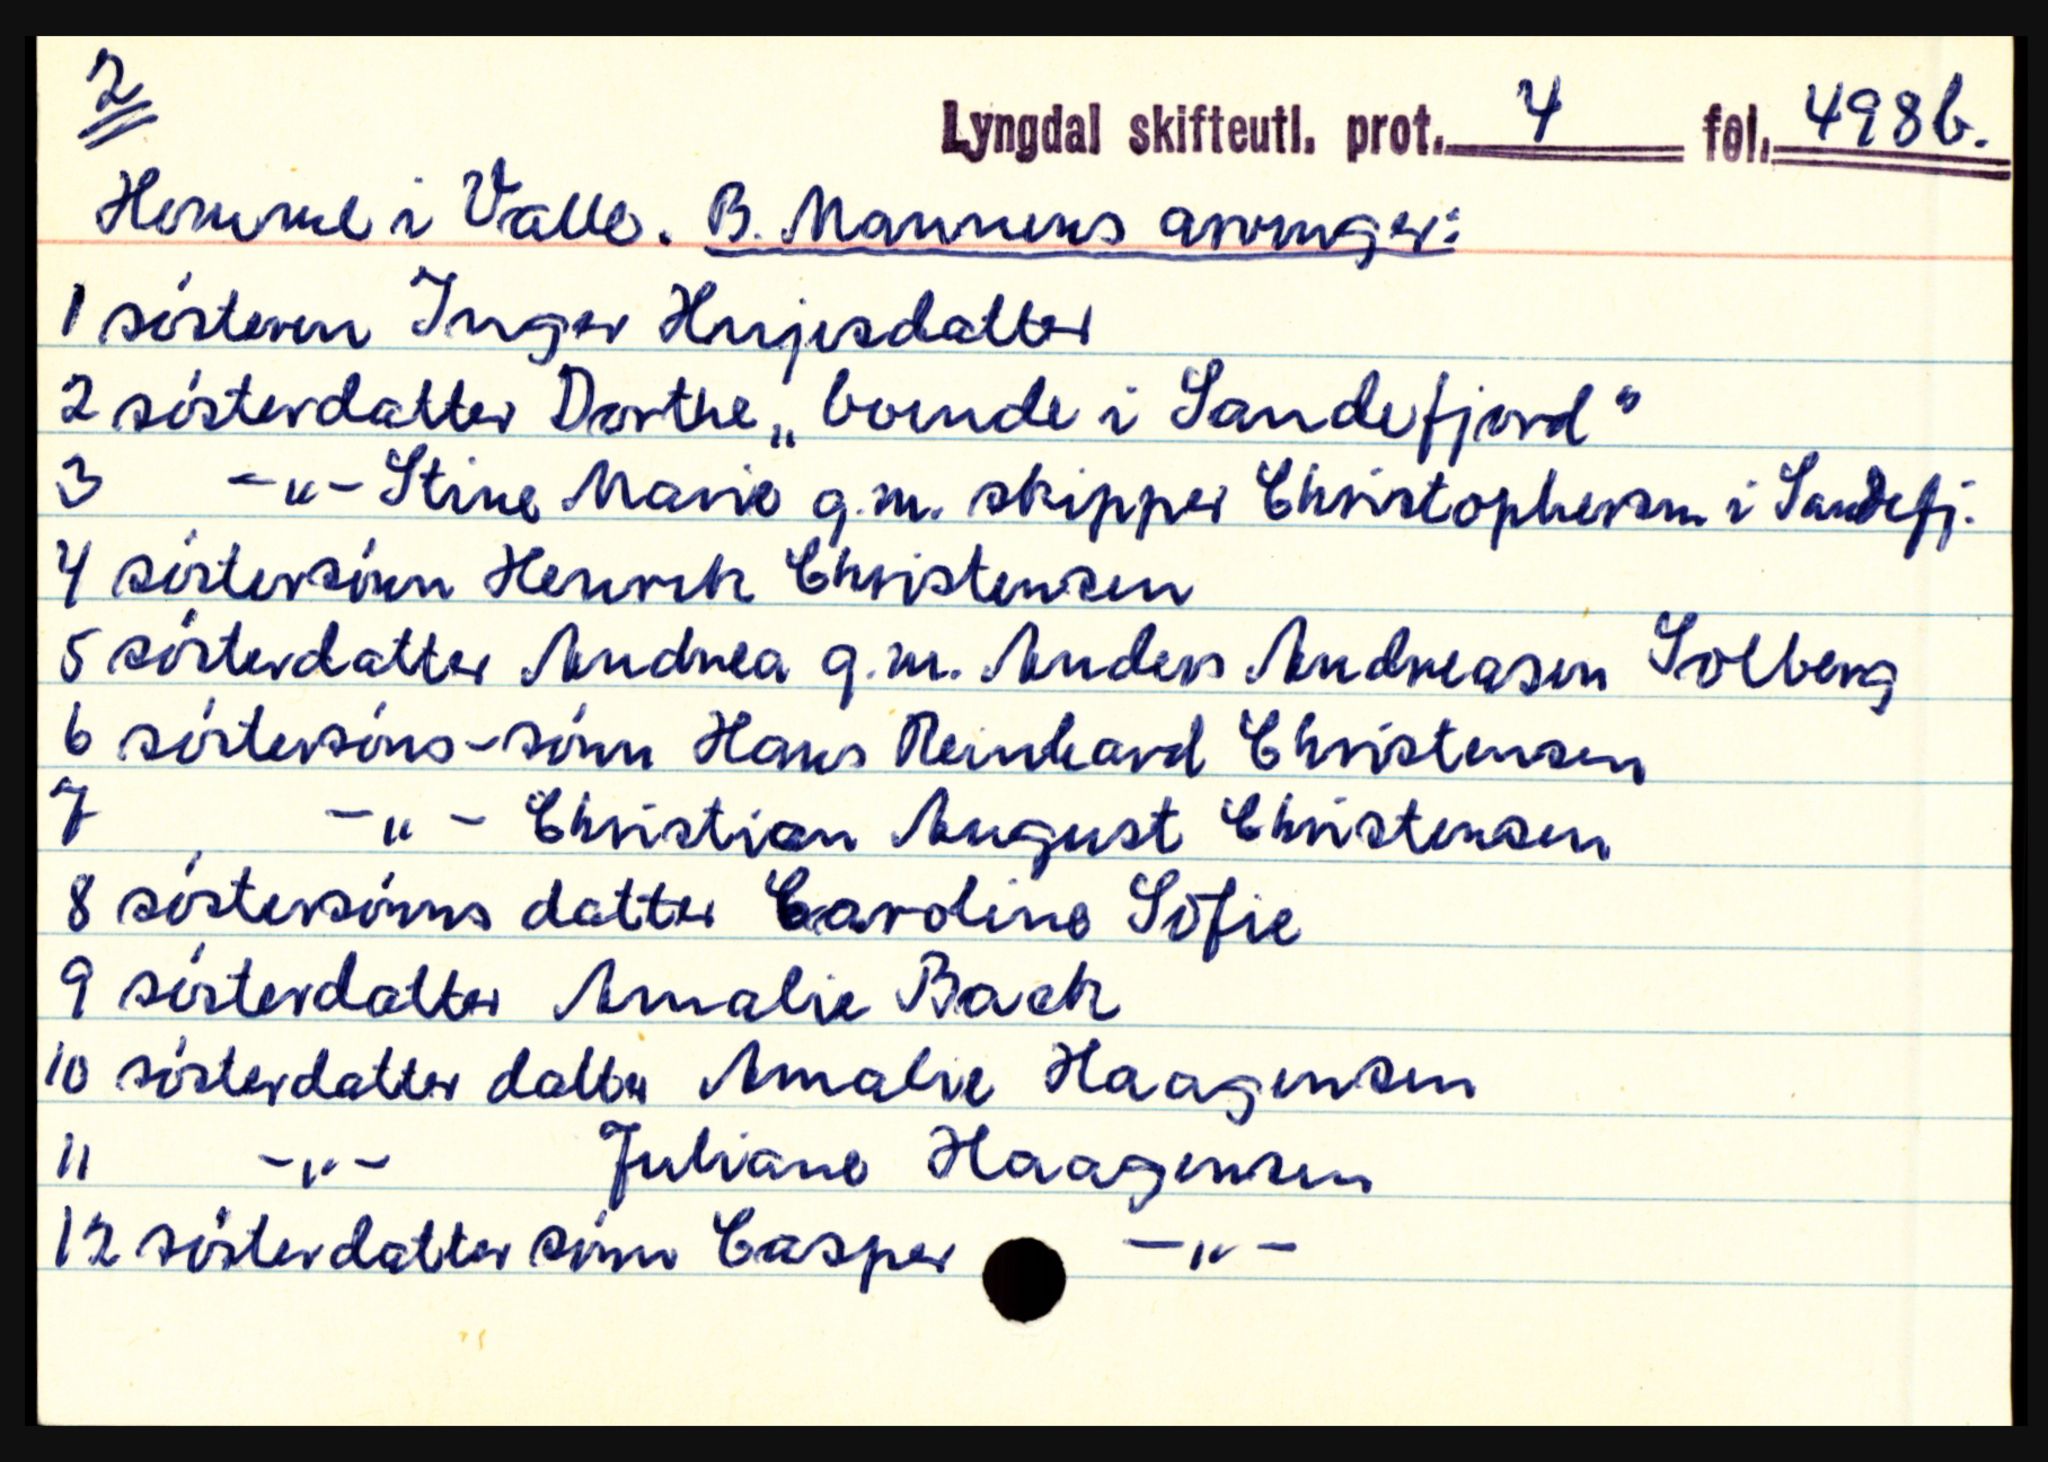 2
Lyngdal skifteutl. prot. 4 fol. 498b.
Homme i Valle. B. Mannens arvinger:
1 søsteren Inger
2 søsterdatter Dorthe „boende i Sandefjord"
3 -„- Stine Marie g.m. skipper Christophersen i Sandefj.
4 søstersønn Henrik Christensen
5 søsterdatter Andrea g.m. Anders Andreasen Solberg
6 søstersøns-sønn Hans Reinhard Christensen
7 -„- Christian August Christensen
8 søstersønns datter Caroline Sofie
9 søsterdatter Amalie Back
10 søsterdatter datter Amalie Haagensen
11 -„- Juliane Haagensen
12 søsterdatter sønn Casper -„-